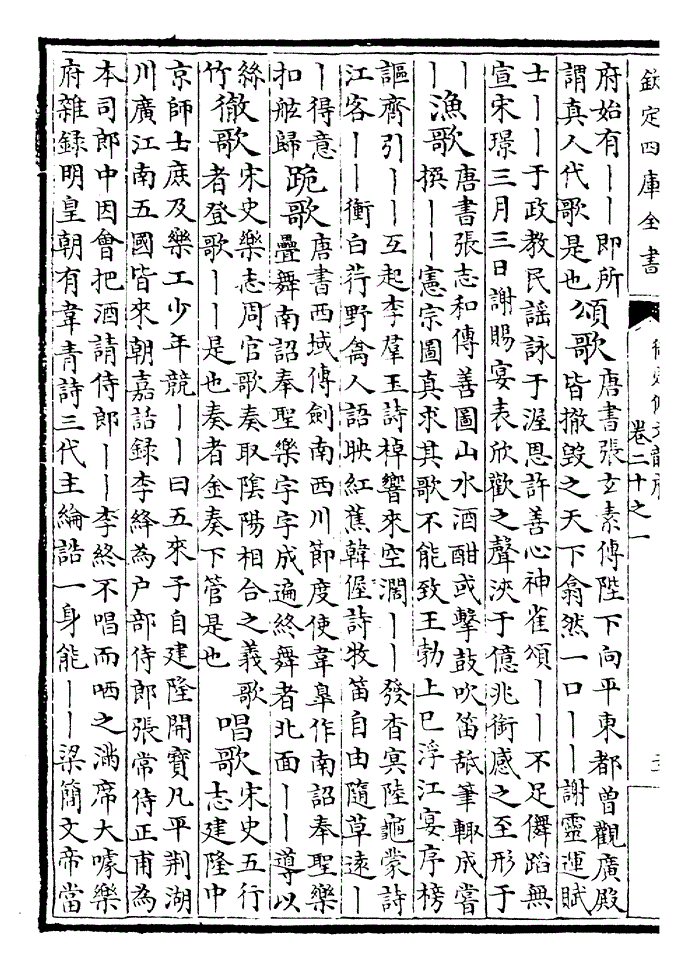 欽定四庫全書
卷二十之一
府始有丨丨即所
謂真人代歌是也
頌歌
唐書張玄素傳陛下向平東都曾觀廣殿
皆撤毀之天下翕然一口丨丨謝靈運賦
士丨丨于政教民謡詠于渥恩許善心神雀頌丨丨不足儛蹈無
宣宋璟三月三日謝賜宴表欣歡之聲浹于億兆銜感之至形于
丨
丨
漁歌
唐書張志和傳善圖山水酒酣或擊鼓吹笛舐筆輒成嘗
撰丨丨憲宗圖真求其歌不能致王勃上巳浮江宴序榜
謳齊引丨丨互起李羣玉詩棹響來空濶丨丨發杳冥陸龜蒙詩
江客丨丨衝白荇野禽人語映紅蕉韓偓詩牧笛自由隨草遠丨
丨得意
扣舷歸
跪歌
唐書西域傳劍南西川節度使韋臯作南詔奉聖樂
疊舞南詔奉聖樂字字成遍終舞者北面丨丨導以
絲
竹
徹歌
宋史樂志周官歌奏取陰陽相合之義歌
者登歌丨丨是也奏者金奏下管是也
唱歌
宋史五行
志建隆中
京師士庶及樂工少年競丨丨曰五來子自建隆開寳凡平荆湖
川廣江南五國皆來朝嘉話録李絳為户部侍郎張常侍正甫為
本司郎中因會把酒請侍郎丨丨李終不唱而哂之滿席大噱樂
府雜録明皇朝有韋青詩三代主綸誥一身能丨丨梁簡文帝當